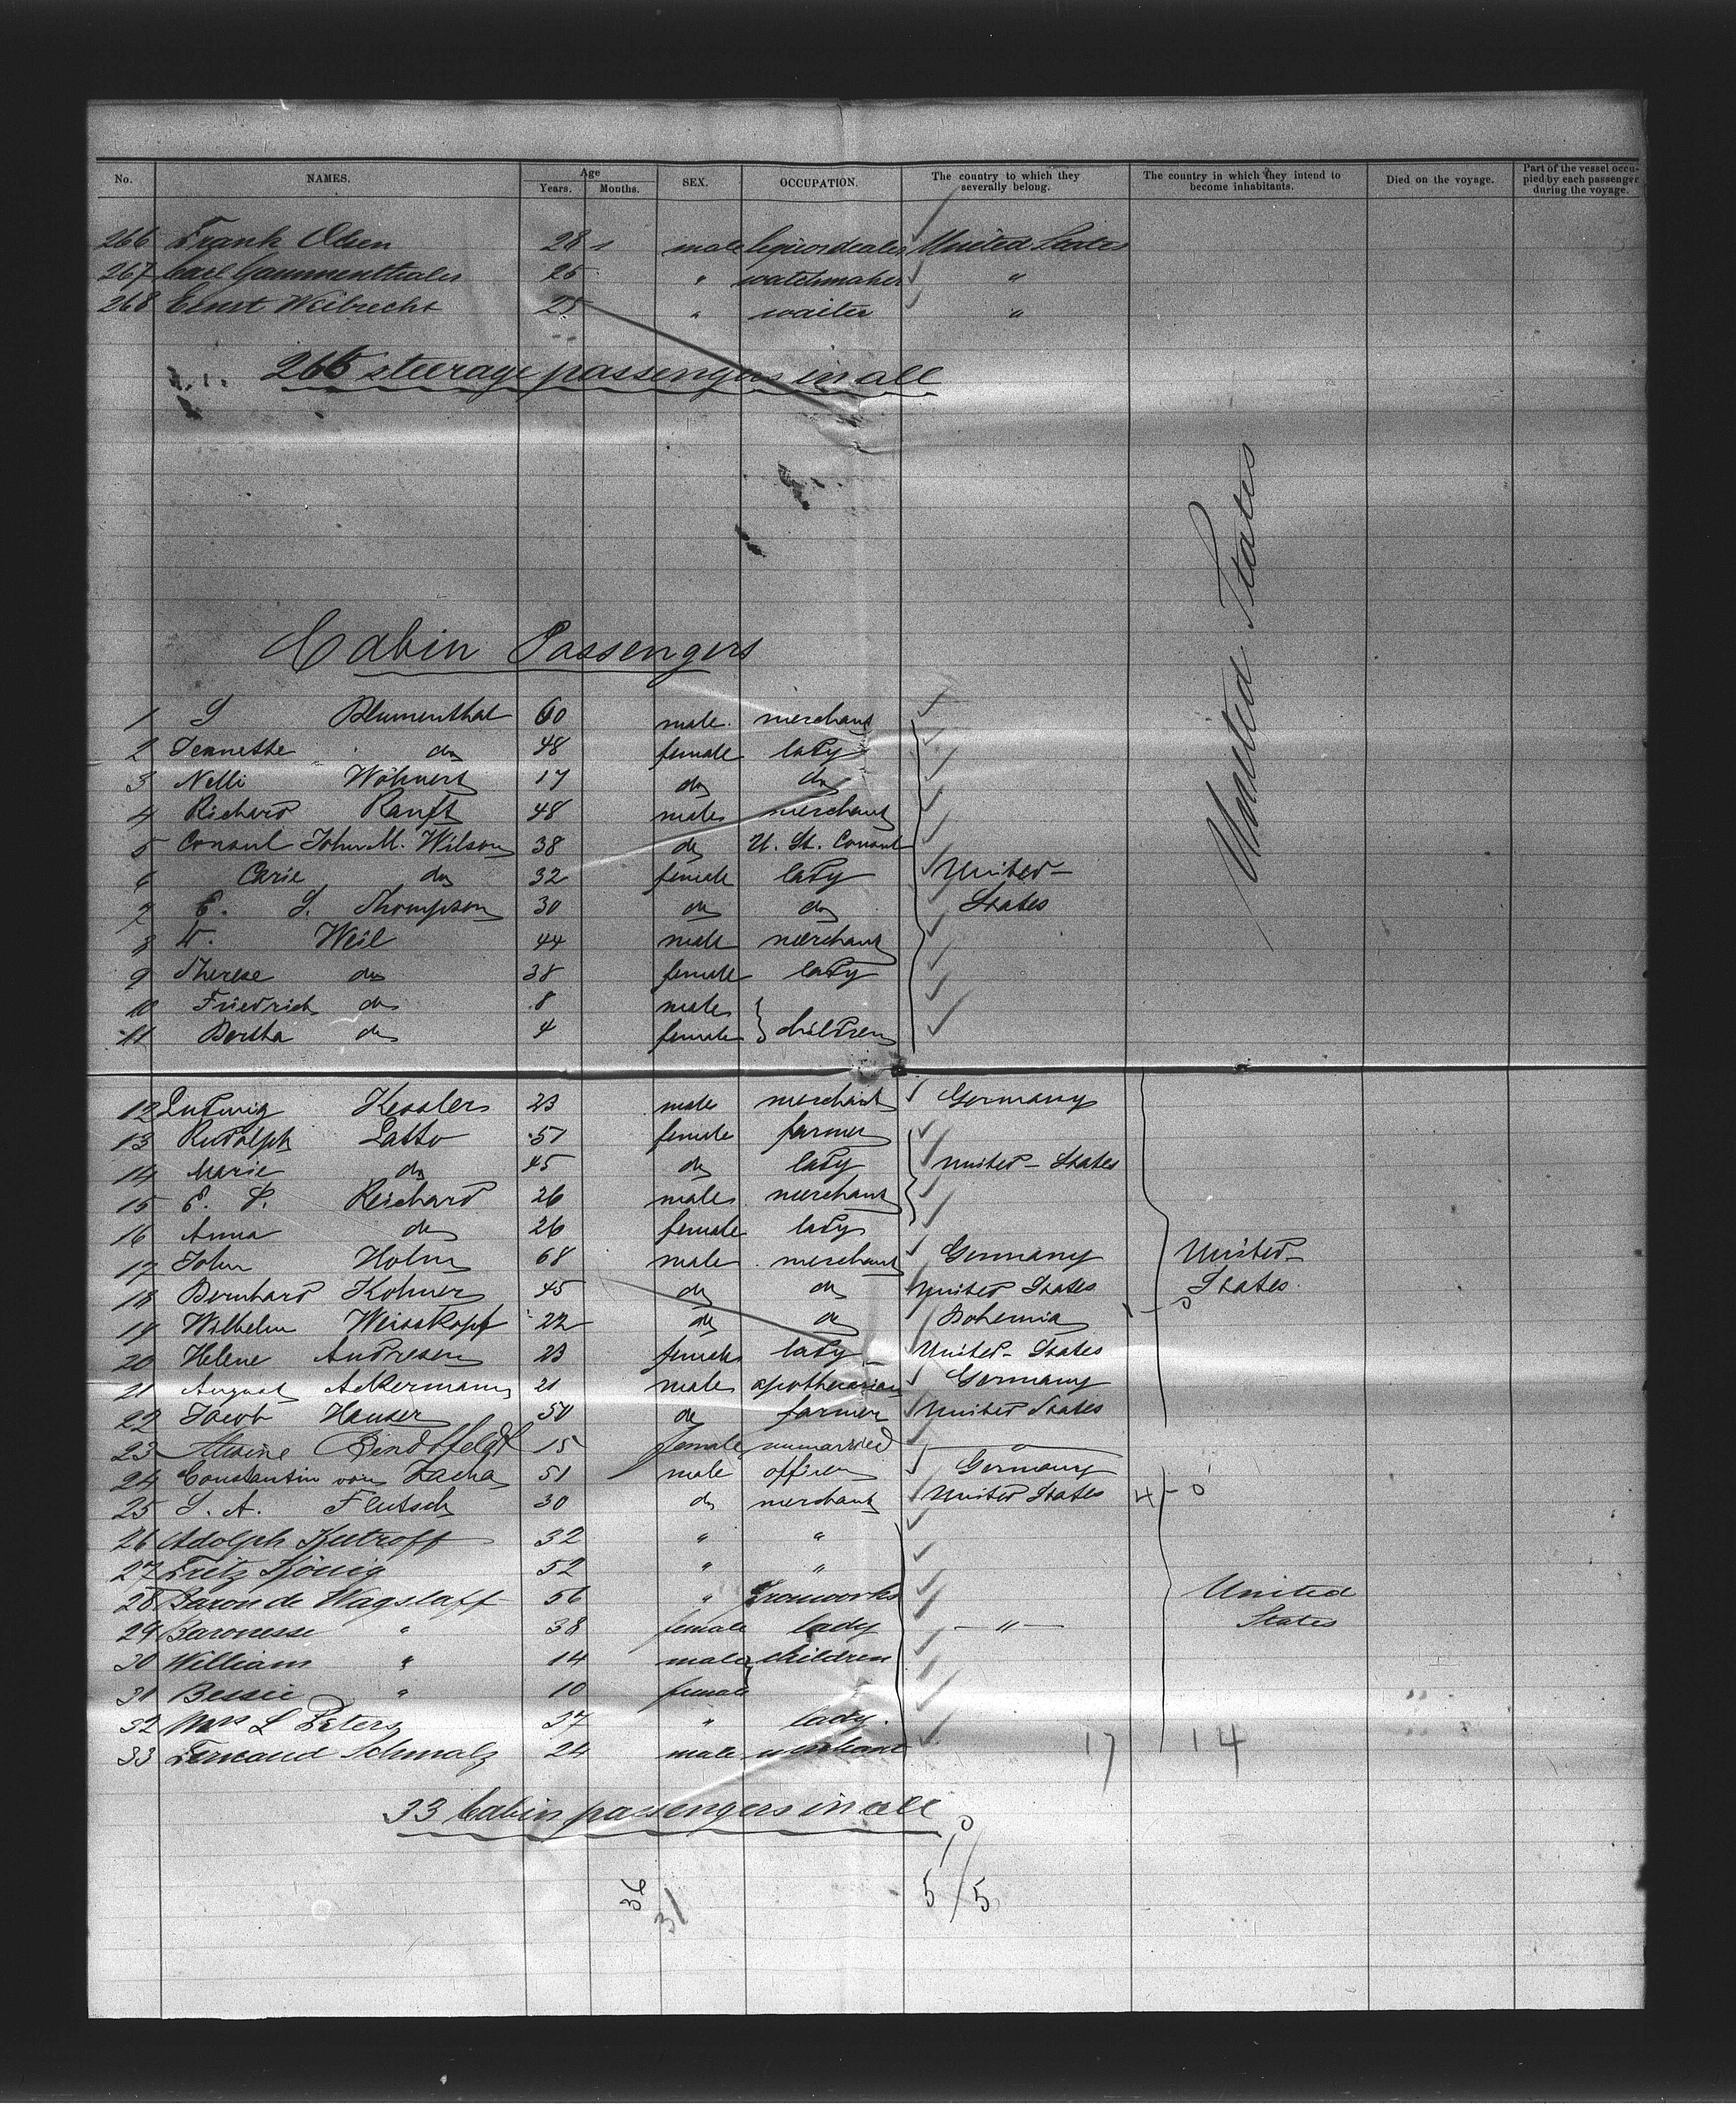 No. NAMES. Age Years. Months. SEX. OCCUPATION. The country to which they severally belong. The country in which they intend to become inhabitants. Died on the voyage. Part of the vessel occupied by each passenger during the voyage.
266 Frank Olsen 28 male liquordealer United States
267 Carl 25 " watchmaker "
268 Ernst Weibrecht 25 " waiter "
steerage passengers in all
United States
Cabin Passengers
1 S Blumenthal 60 male merchant
2 Jennette do 48 female lady
3 Nelli Wöhnert 17 do do
4 Richard Ranft 48 male merchant
5 Consul John M. Wilson 38 do U. St. Consul
6 Carie do 32 female lady United-
7 E. S. Thompson 30 do do States
8 W. Weil 44 male merchant
9 Therese do 38 female lady
10 Friedrich do 8 male
11 Bertha do 4 female children
12 Ludwig Kessler 23 male merchant Germany
13 Rudolph Latto 51 female farmer
14 Marie do 45 do lady United-States
15 E. P. Reichard 26 male merchant
16 Anna do 26 female lady
17 John Holm 68 male merchant Germany United-
18 Bernhard Kohner 45 do do United States States.
19 Wilhelm Weisskopf 22 do do Bohemia 1-0
20 Helene Andresen 23 female lady United-States
21 August Ackermann 21 male apothecarian Germany
22 Jacob Hauser 50 do farmer United States
23 Alwine Bindtfeldt 15 female unmarried
24 Constantin von Zacha 51 male officer Germany
25 S. A. Flutsch 30 do merchant United States 4-0
26 Adolph Kuttroff 32 " "
27 Fritz König 52 " "
28 Baron de Wagstaff 56 " Ironworks United
29 Baronesse " 38 female lady - " - States
30 William " 14 male children
31 Bessie " 10 female
32 Mrs L Peters 37 " lady.
33 Fernand Schmalz 24 male merchant 17 14
33 Cabin passengers in all
5/5
36
31